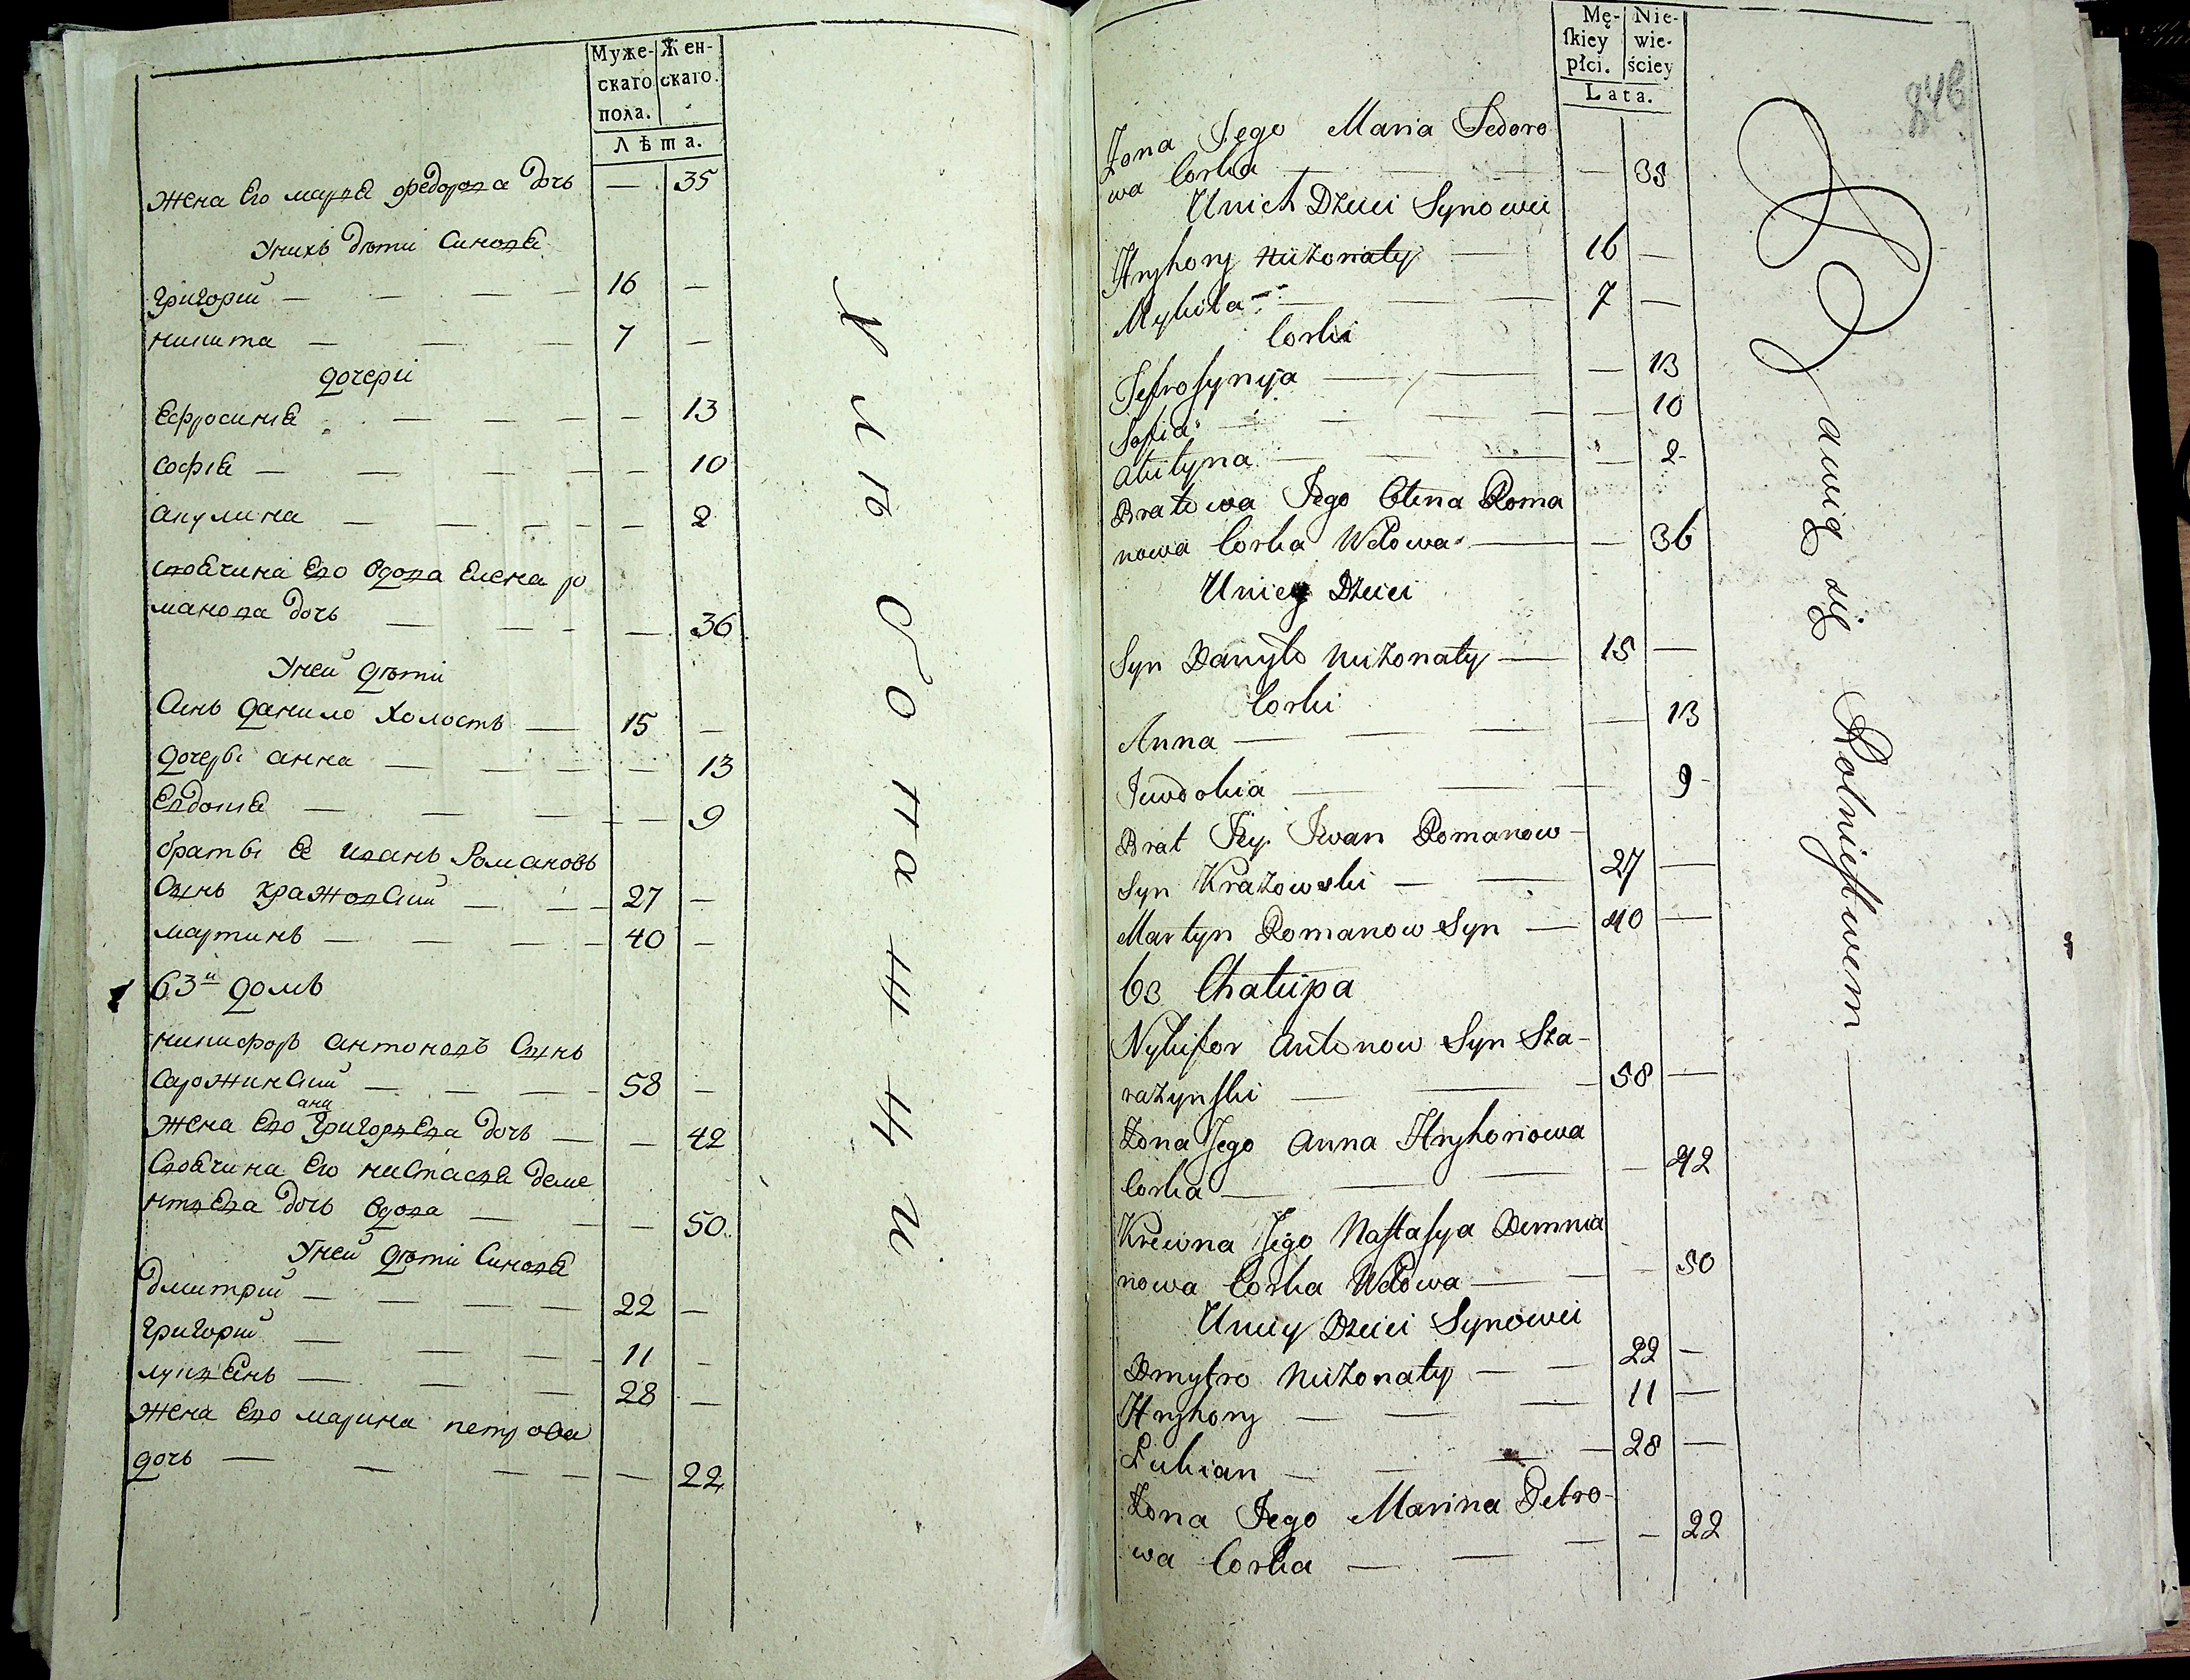 Муже-
скаго
пола.
Жен-
скаго.
Лѣта.
жена Его марѣя Федорова дочь — 35
Унихъ дѣти Синовя
григорий — 16 —
никита — 7 —
дочери
Ефросиня — 13
софия — 10
акулина — 2
своячина Его вдова Елена ро
манова дочь — 36
Уней дѣти
Синъ данило холостъ — 15 —
дочеры анна — 13
Евдокия — 9
браты Ее иванъ Романовъ
Сынъ кражовский — 27 —
мартинъ — 40 —
63й домъ
никифоръ антоновъ Сынъ
Сарожинский — 58 —
ана
жена Его григорьева дочь — 42
Своячина Его настасья деме
нтьева дочь вдова — 50
Уней дѣти Синовя
дмитрий — 22 —
григорий — 11 —
лукьянъ — 28 —
жена Его марина петрова
дочь — 22
хлѣбопашци
Mę-
ſkiey
płci.
Nie-
wie-
ściey
Lata.
246
Żona Jego Maria Fedoro
wa Corka — 35
Unich Dzieci Synowei
Hryhory nieżonaty — 16 —
Mykita — 7 —
Corki
Jefrosynija — 13
Sofia — 10
Akulyna — 2
Bratowa Jego Olena Roma
nowa Corka Wdowa — 36
Uniey Dzieci
Syn Danyło nieżonaty — 15 —
Corki
Anna — 13
Juwdokia — 9
Brat Jey Iwan Romanow
Syn Krażowski — 27 —
Martyn Romanow Syn — 40 —
63 Chałupa
Nykifor Antonow Syn Sza-
rażynſki — 58 —
Żona Jego Anna Hryhoriowa
Corka — 42
Krewna Jego Naſtaſya Demnia
nowa Corka Wdowa — 50
Uniey Dzieci Synowei
Dmytro nieżonaty — 22 —
Hryhory — 11 —
Łukian — 28 —
Żona Jego Marina Petro-
wa Corka — 22
Bawią się Rolnictwem